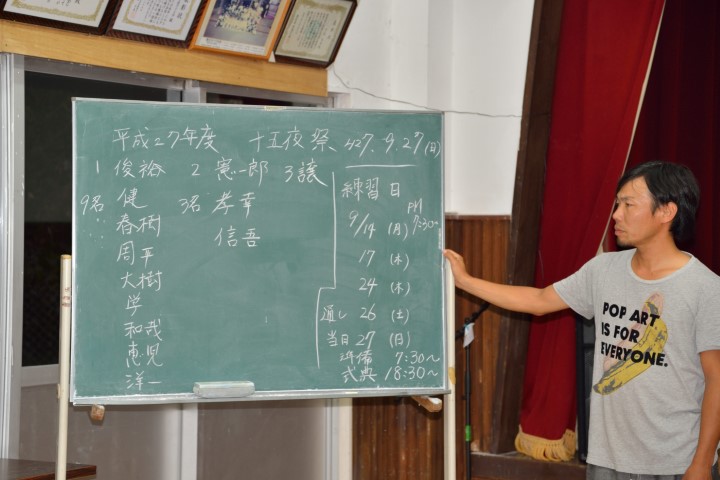 平成27年度 十五夜祭 H27.9.27(日)
1 俊裕 2 憲一郎 3 譲
9名 健 3名 孝幸
春樹 信吾
周平
大樹
学
和哉
恵児
洋一
練習日
PM
9/14 (月) 7:30〜
17 (木)
24 (木)
通し 26 (土)
当日 27 (日)
準備 7:30〜
式典 18:30〜
POP ART
IS FOR
EVERYONE.